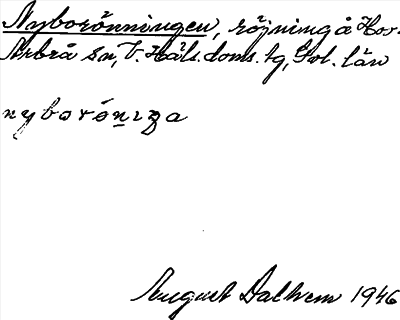 Nyborönningen, röjning å Hov.
Arbrå sn, V. Häls. doms. tg, Gvl. län
nyborön̲iꞑa
August Dalhem 1946